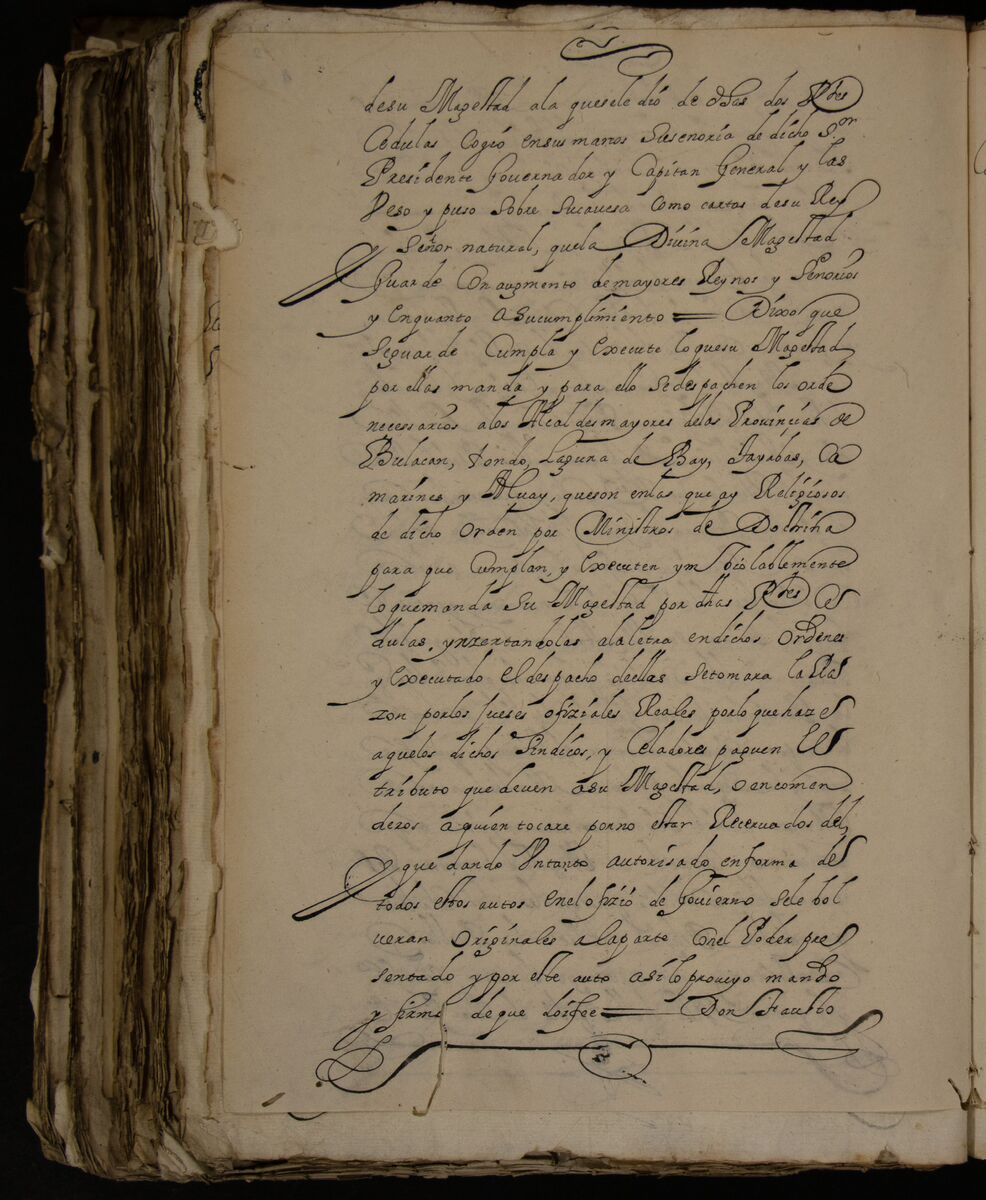 desu Magestad ala quesele dió de dhas dos Rles
Cedulas Cogió ensus manos Susenoria de dicho S.or
Presidente Governador y Capitan General y las
Veso y puso Sobre Sucavesa Como cartas desu Rey
y Señor natural, quela Divina Magestad
Guarde Con augmento demayores Reynos y Señorios
y Enquanto a sucumplimiento = Dixo que
Seguarde Cumpla y execute loquesu Magestad
por ellas manda y para ello Sedespachen los orde
necessarios alos Alcaldesmayores delas Provincias de
Bulacan, tondo, Laguna de Bay, tayabas, Ca
marines y Alvay, queson enlas que ay Religiosos
de dicho orden por Ministros de Doctrina
para que Cumplan, y executen ynbiolablemente
loquemanda Su Magestad por dhas Rles Ce
dulas, ynzertandolas alaletra endichos ordenes
y executado el despacho dellas Setomara la Ra
zon porlos Jueses ofiziales Reales porloquehaze
aquelos dichos Sindicos, y Celadores paguen el
tributo quedeven asu Magestad, o encomen
deros aquien tocare porno estar Recervados del,
y que dando Untanto autorisado enforma de
todos estos autos enel ofizio de Govierno sele bol
veran originales alaparte Conel Poder pre
sentado y por este auto asilo proveyo mando
y firmo deque doifee = Don Fausto